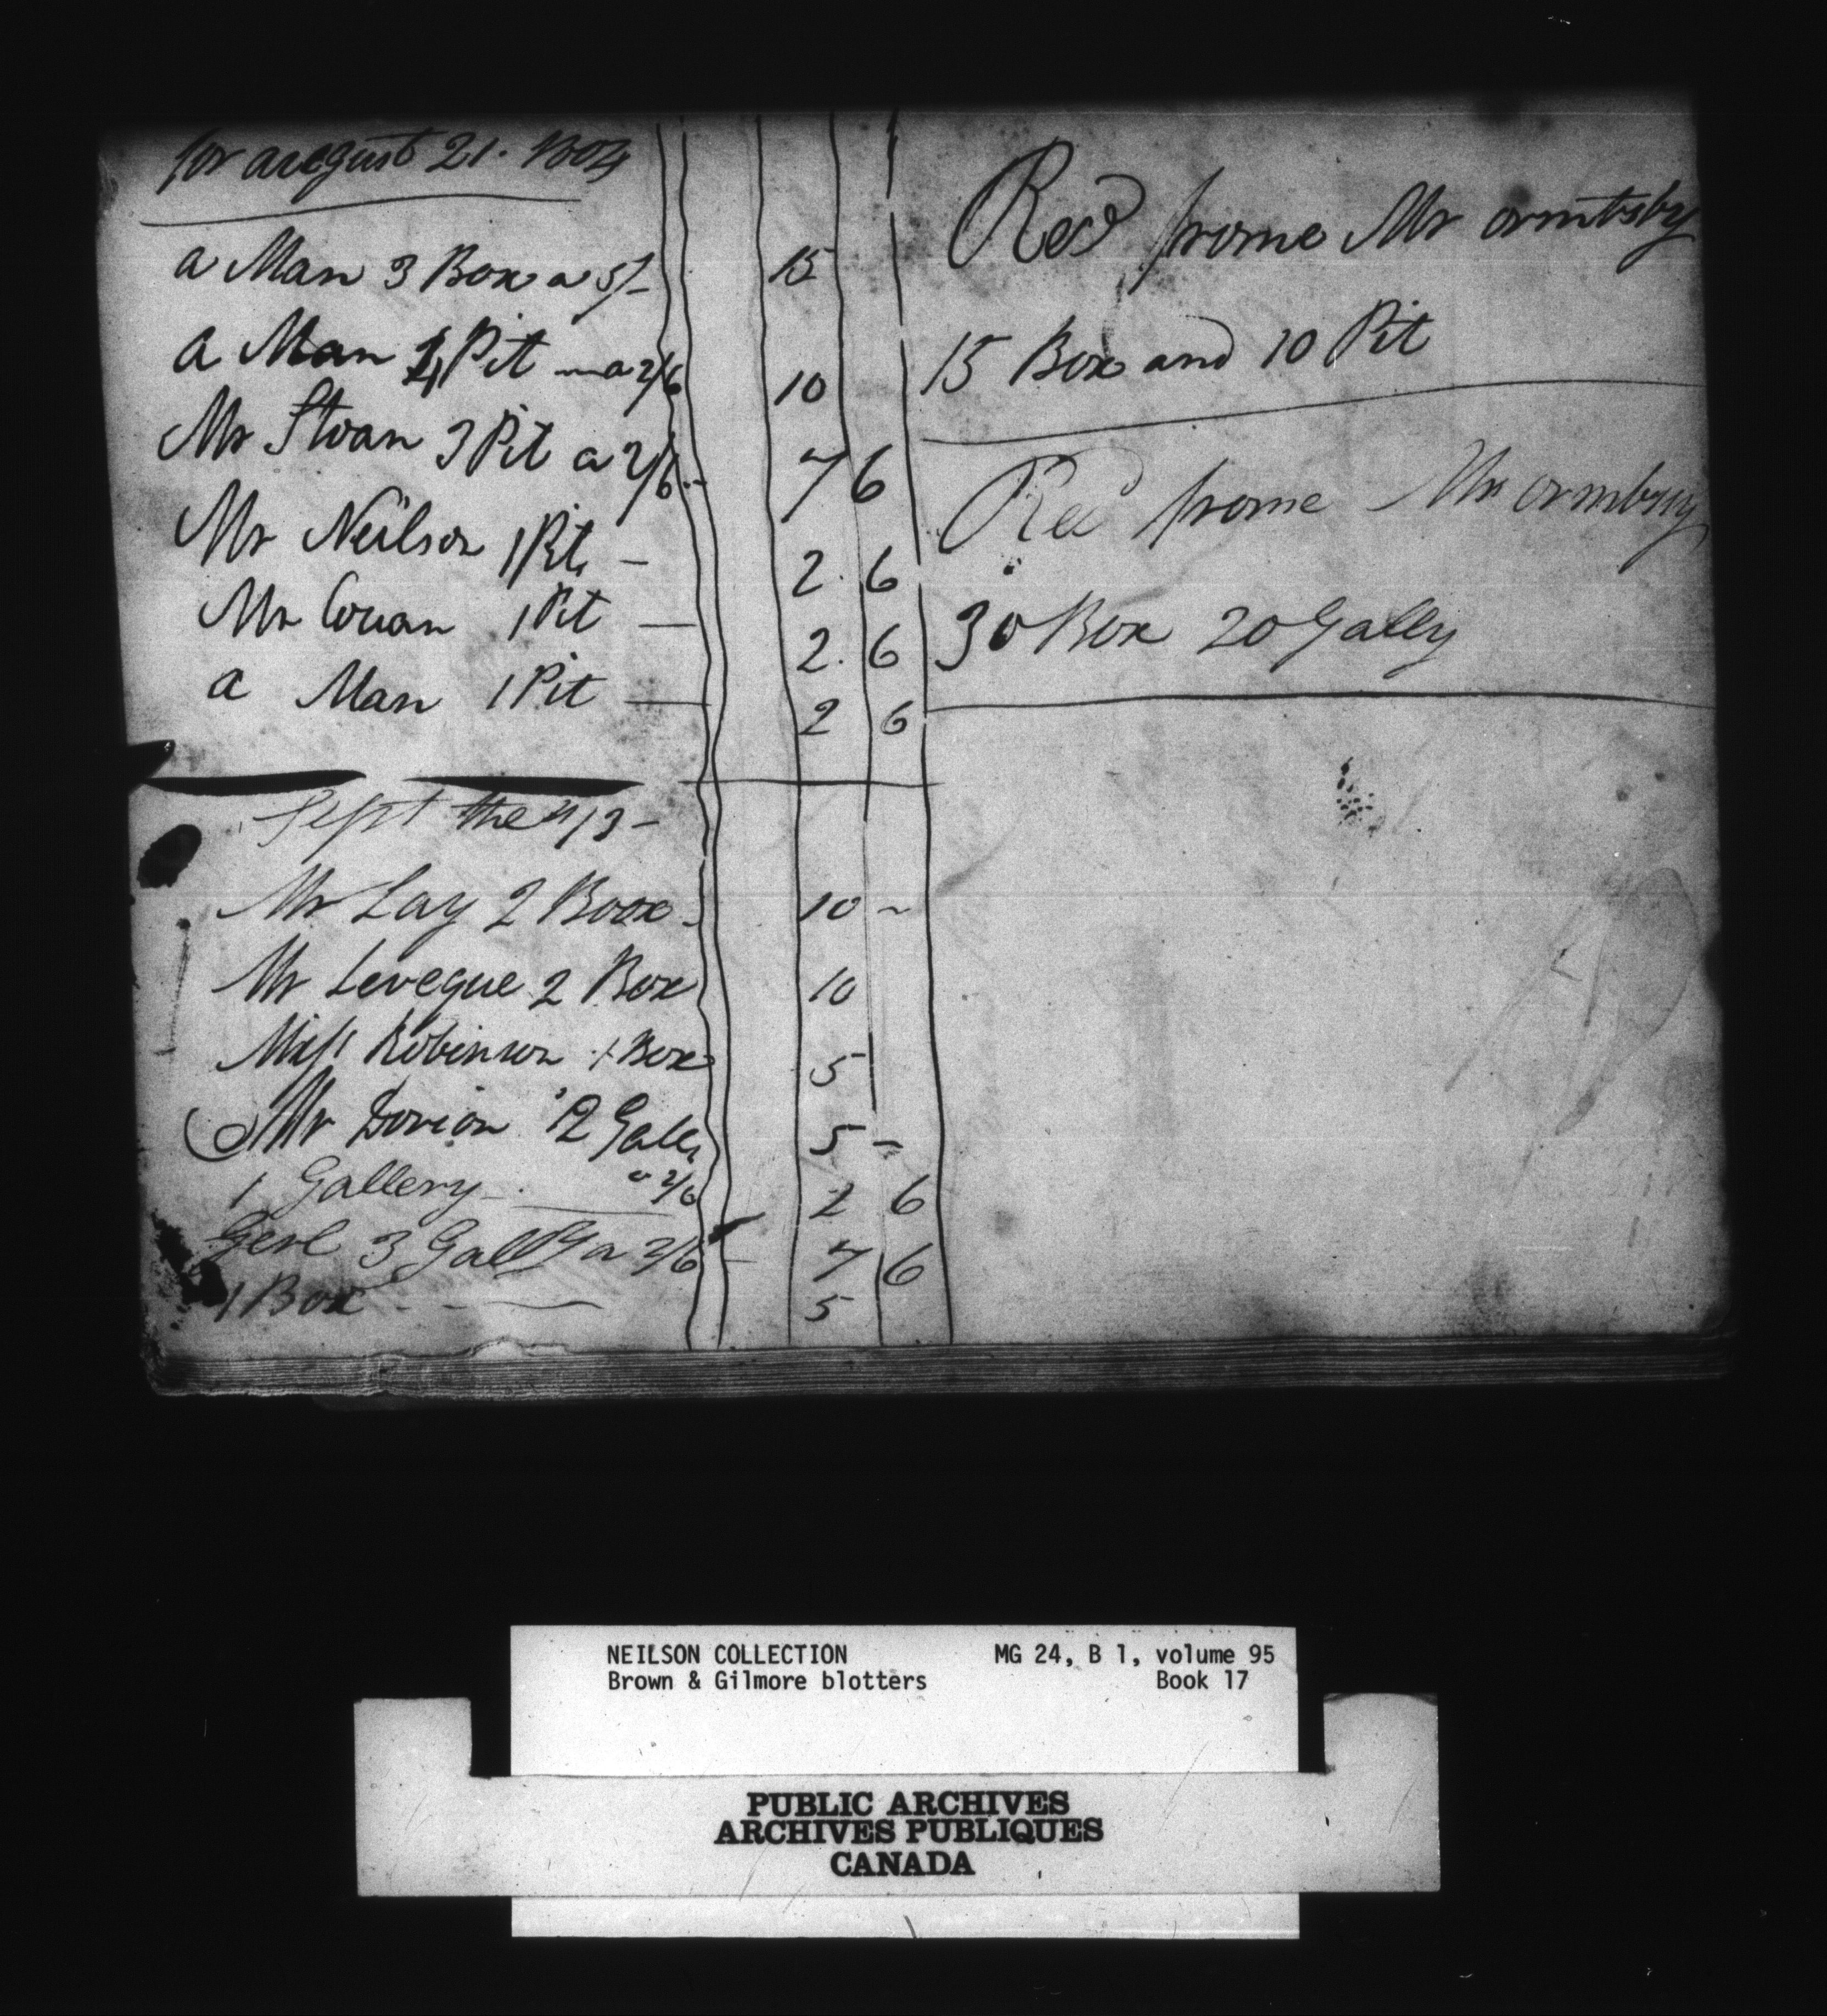 for august 21. 1804
a Man 3 Box a 5/- 15
a Man 4 Pit a 2/6 10
Mr Sloan 3 Pit a 2/6 7 6
Mr Neilson 1 Pit - 2. 6
Mr Couan 1 Pit — 2. 6
a Man 1 Pit — 2 6
Sept the 13 -
Mr Lay 2 Boox - 10 ~
Mr Leveque 2 Box 10
Miss Robinson 1 Box 5
Mr Dorion 2 Gall 5 ~
1 Gallery a 2/6 2 6
Gerl 3 Gally a 2/6 - 7 6
1 Box - - — 5
Recd frome Mr ormtsby
15 Box and 10 Pit
Recd frome Mr ormbsy
30 Box 20 Gally
NEILSON COLLECTION MG 24, B 1, volume 95
Brown & Gilmore blotters Book 17
PUBLIC ARCHIVES
ARCHIVES PUBLIQUES
CANADA